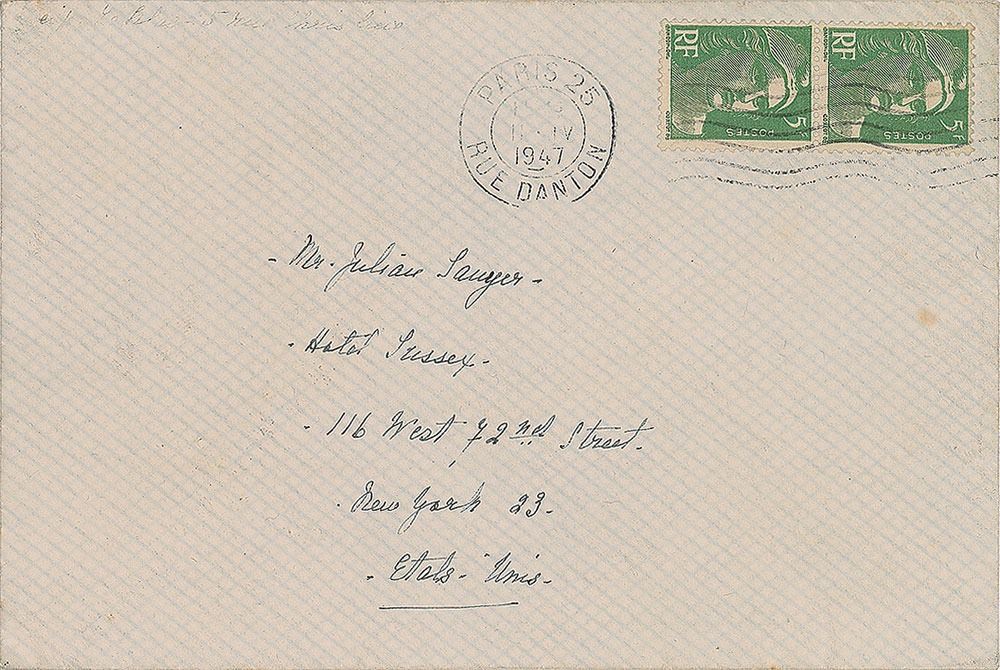 PARIS 25
IV
1947
RUE DANTON
RF
5F
POSTES
RF
5F
POSTES
- Mr. Julian Sawyer -
- Hotel Sussex -
- 116 West 72nd Street -
- New York 23 -
- Etats-Unis -